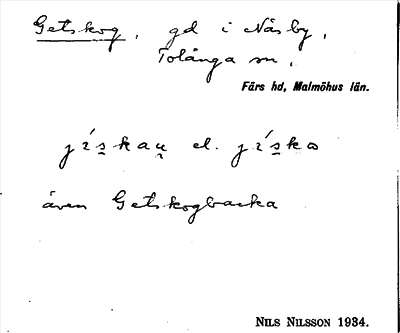 Getskog, gd i Näsby,
Tolånga sn.
Färs hd, Malmöhus län.
även Getskogbacka
NILS NILSSON 1934.